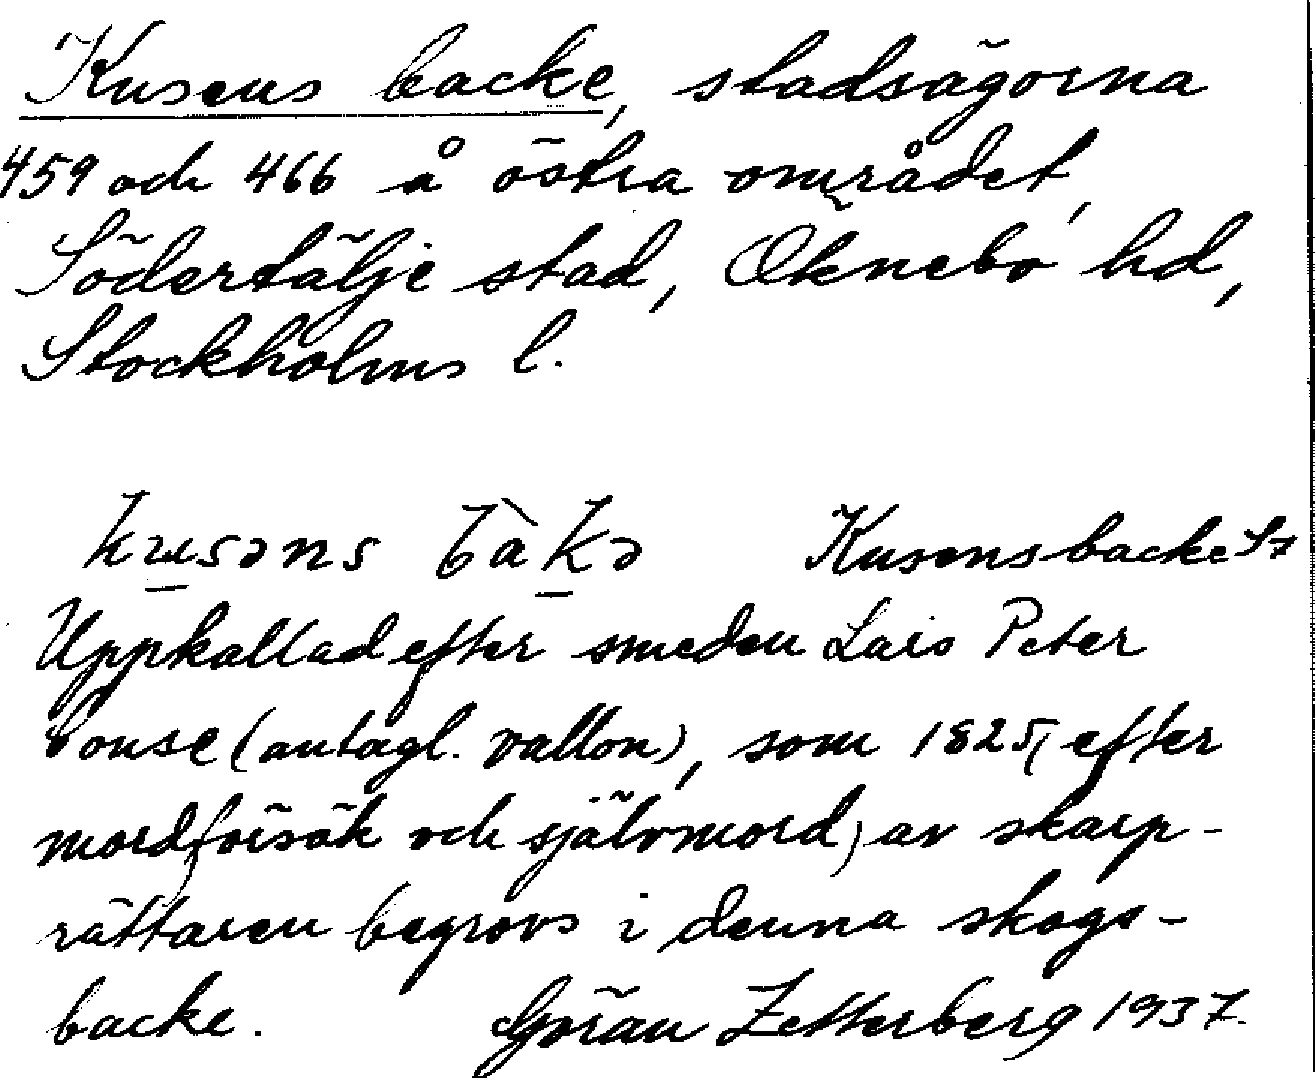 Kusens backe, stadsägorna
459 och 466 å östra området,
Södertälje stad, Öknebo hd,
Stockholms l.
kusəns bàkə Kusens backe
Uppkallad efter smeden Lars Peter
Couse (antagl. vallon), som 1825, efter
mordförsök och självmord, av skarp-
rättaren begrovs i denna skogs-
backe. Göran Zetterberg 1937.